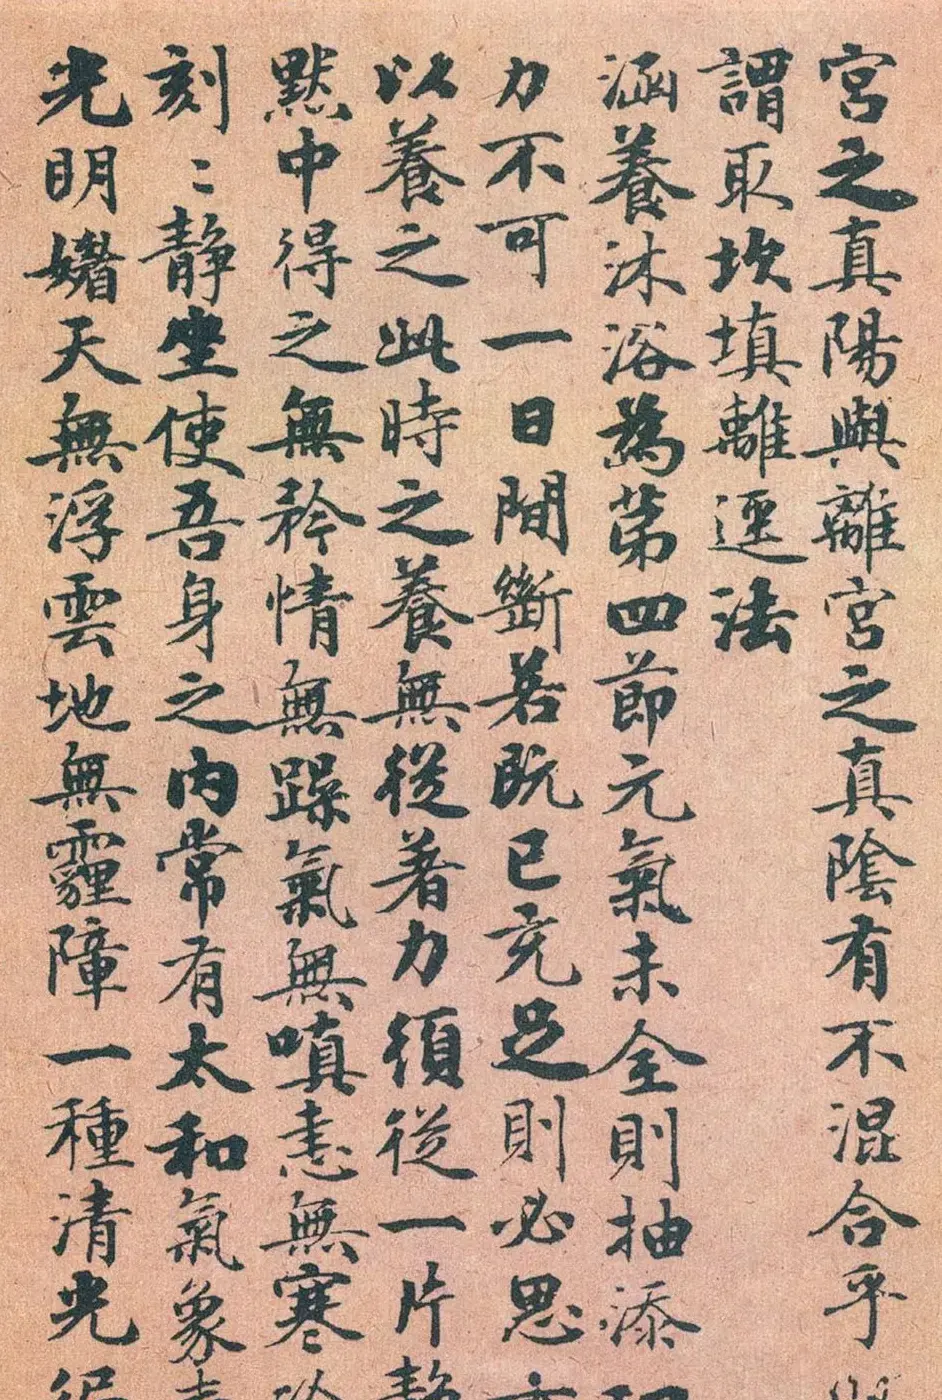 宮之真陽與離宮之真陰有不混合乎
謂取坎填離逕法
涵養沐浴為第四節元氣未全則抽添
力不可一日間斷若既已充足則必思
以養之此時之養無從著力須從一片靜
默中得之無矜情無躁氣無嗔恚無寒
刻〻靜坐使吾身之內常有太和氣象
光明媚天無浮雲地無霾障一種清光